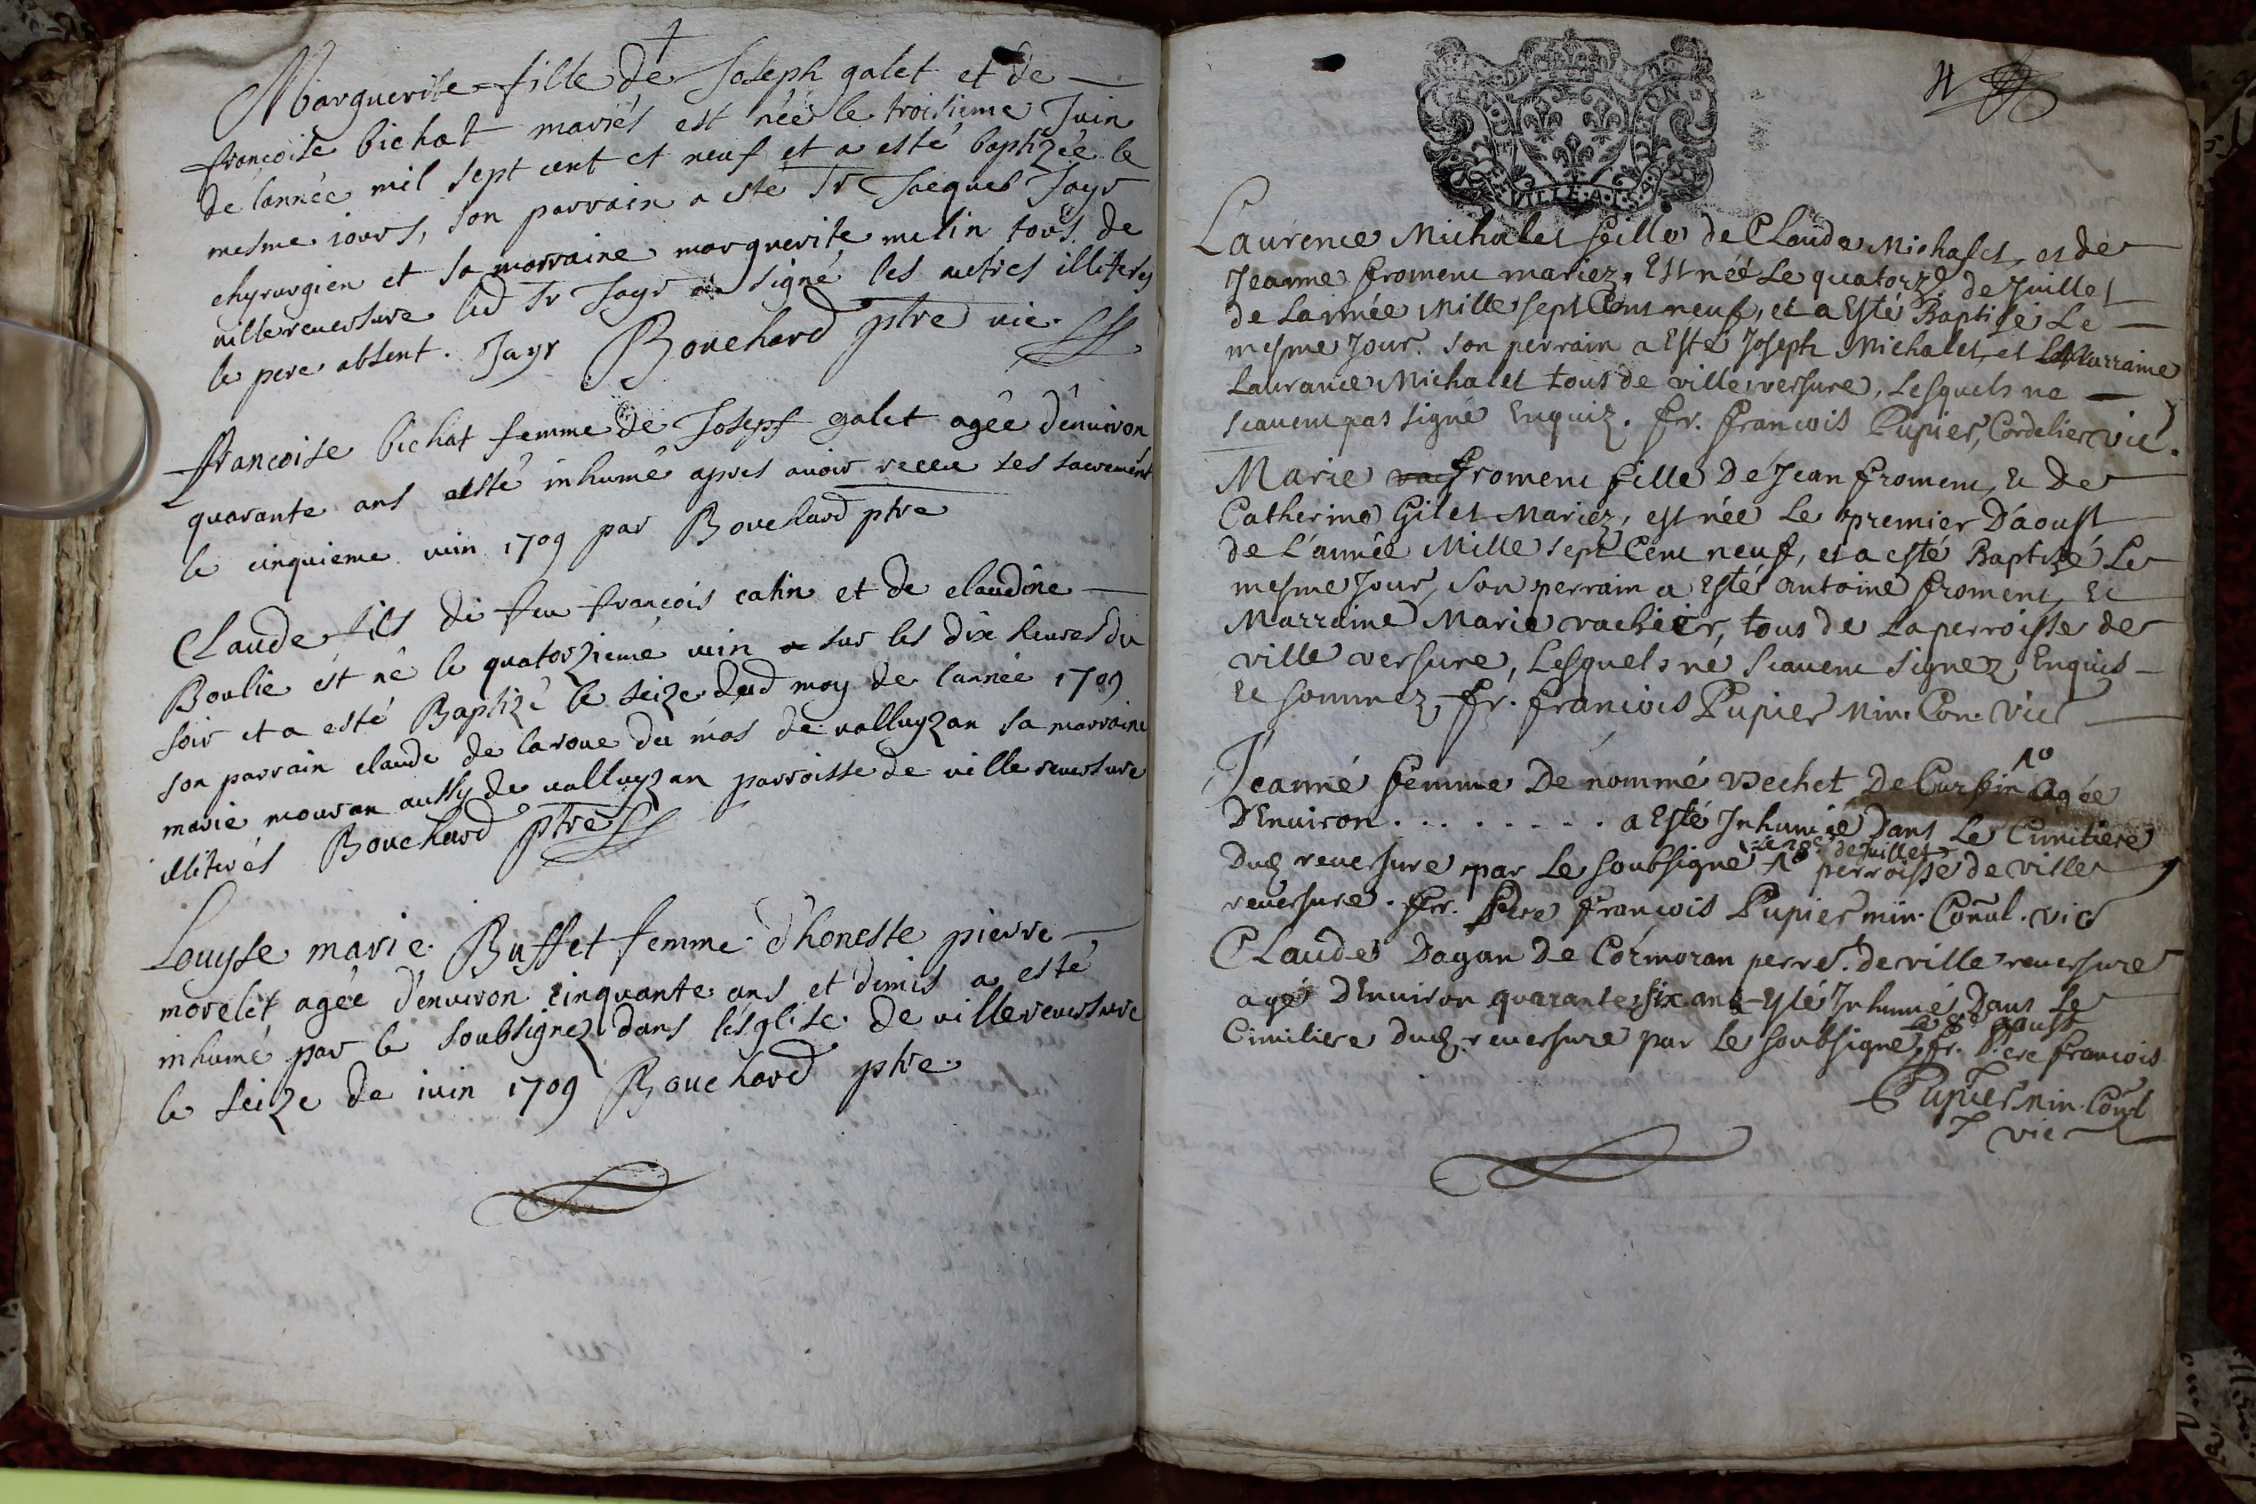 Marguerite fille de Joseph galet et de
francoise bichat mariés est née le troisieme Juin
de l'année mil sept cent et neuf et a esté baptizée le
mesme iours, son parrain a esté Sr Jacques Jayr
chyrurgien et sa marraine marguerite melin tous de
villereversure led Sr Jayr a signé les autres illiterés
le pere absent. Jayr Bouchard ptre vic.
francoise bichat femme de Joseph galet agée d'environ
quarante ans a esté inhumé apres avoir receu ses sacrement
le cinquieme iuin 1709 par Bouchard ptre
Claude fils de feu francois catin et de claudine
Boulie ést né le quatorzieme iuin sur les dix heures du
soir et a esté Baptizé le seize dud moy de l'année 1709
son parrain claude de laroue du mas de valluyzan sa marraine
marie mouran aussy de valluyzan parroisse de villereversure
illiterés Bouchard ptre
Louyse marie Buffet femme d'honeste pierre
morelet agée d'environ cinquante ans et dimis a esté
inhumé par le soubsignez dans l'esglise de villereversure
le seize de iuin 1709 Bouchard ptre
4
Laurence Michalet feille de Claude Michalet, et de
Jeanne froment mariez, Est néé Le quatorze de Juillet
de Lannée Mille sept Cent neuf, et a Esté Baptisé Le
mesme Jour. Son perrain a Esté Joseph Michalet, et La Marraine
Laurance Michalet tous de ville versure, Lesquels ne
scavent pas signé Enquiz. fr. francois Pupier, Cordelier vic.
Marie froment fille De Jean froment, et De
Catherine Gilet Mariez, est née Le premier D'aoust
de L'année Mille sept Cent neuf, et a esté Baptizé Le
mesme Jour, Son perrain a Esté antoine froment, Et
Marraine Marie vachier, tous de La perroisse de
ville versure, Lesquels ne scavent signez Enquis
Et sommez, fr. francois Pupier Min. Con. Vic
Jeanne femme De nommé Vechet De Curfin Agée
D'Environ . . . . . . . . a Esté Inhumée Dans Le Cimitiere
Dud. reversure par Le soubsigné le 28e de Juillet perroisse de ville
reversure. fr. Pere francois Pupier min. Conul. vic
Claude Dagan De Cormoran perre. de ville reversure
agé D'Environ quarante six ans Esté Inhumé Dans Le
Cimitiere Dud. reversure par Le soubsigné, fr. Pere francois
Pupier Min. Conl
vic